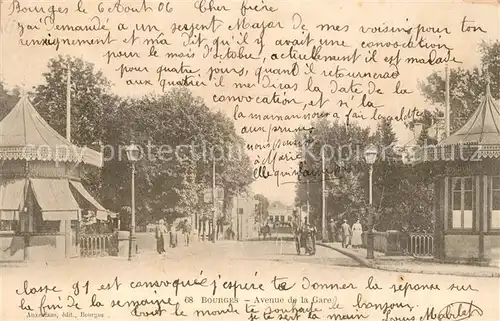 Bourges le 6 Aout 06 Cher frère
j'ai demandé a un sergent Major de mes voisins pour ton
renseignement et ma dit qu'il y avait une convocation
pour le mois d'octobre, actuellement il est malade
pour quatre jours, quand il retournera
au quartier il me diras la date de la
convocation, et si la
maman a fait le
aux prunes
nous
Marie
elle
classe 91 est convoqué j'espère ta réponse sur
la fin de la semaine tout le monde te souhaite le bonjour
je te sert la main Louis
68 BOURGES - Avenue de la Gare
Auxenfans, édit., Bourges